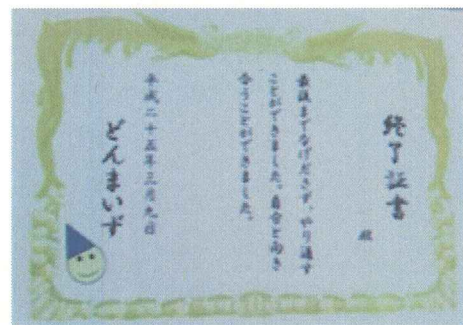 終了証書
殿
最後までなげださず、やり通す
ことができました。自分と向き
合うことができました。
平成二十五年三月九日
どんまいず